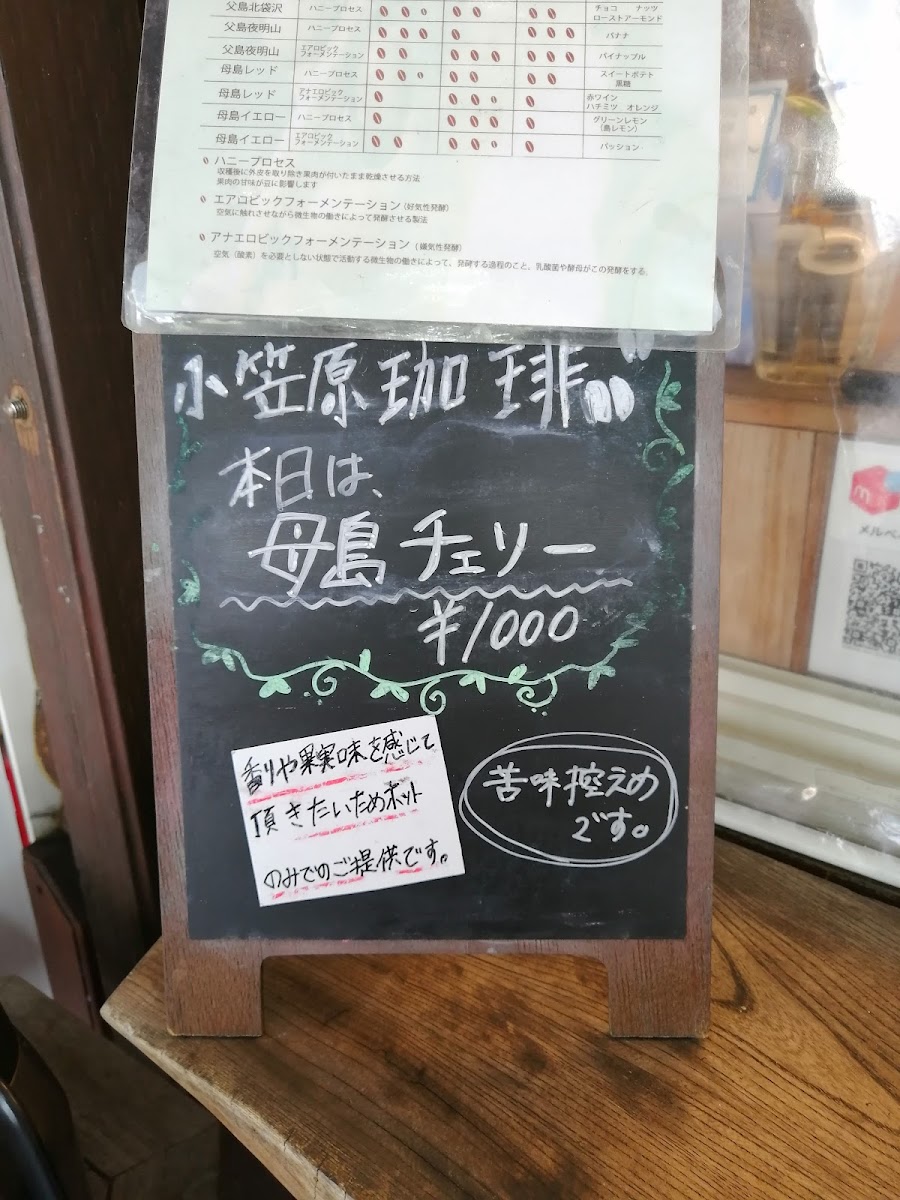 父島北袋沢 ハニープロセス チョコ ナッツ
ローストアーモンド
父島夜明山 ハニープロセス バナナ
父島夜明山 エアロビック フォーメンテーション パイナップル
母島レッド ハニープロセス スイートポテト
黒糖
母島レッド アナエロビック フォーメンテーション 赤ワイン
ハチミツ オレンジ
母島イエロー ハニープロセス グリーンレモン
(島レモン)
母島イエロー エアロビック フォーメンテーション パッション
ハニープロセス
収穫後に外皮を取り除き果肉が付いたまま乾燥させる方法
果肉の甘味が豆に影響します
エアロビックフォーメンテーション(好気性発酵)
空気に触れさせながら微生物の働きによって発酵させる製法
アナエロビックフォーメンテーション(嫌気性発酵)
空気(酸素)を必要としない状態で活動する微生物の働きによって、発酵する過程のこと、乳酸菌や酵母がこの発酵をする。
小笠原珈琲
本日は、
母島チェリー
¥1000
香りや果実味を感じて
頂きたいためホット
のみでのご提供です。
苦味控えめ
です。
メルペ